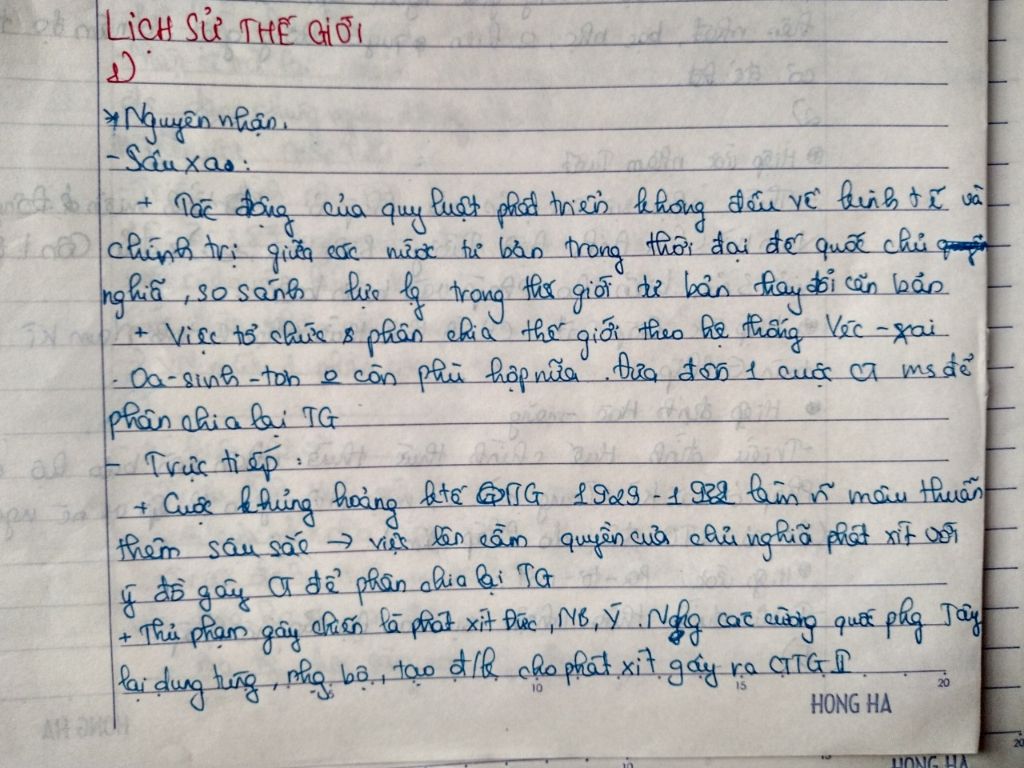 LỊCH SỬ THẾ GIỚI
1)
* Nguyên nhân.
- Sâu xa:
+ Tác động của quy luật phát triển không đều về kinh tế và
chính trị giữa các nước tư bản trong thời đại đế quốc chủ
nghĩa, so sánh lực lg trong thế giới tư bản thay đổi căn bản
+ Việc tổ chức & phân chia thế giới theo hệ thống Véc-xai
- Oa-sinh-tơn còn phù hợp nữa. Đưa đến 1 cuộc CT ms để
phân chia lại TG
- Trực tiếp:
+ Cuộc khủng hoảng ktế TG 1929-1933 làm n~ mâu thuẫn
thêm sâu sắc → việc lên cầm quyền của chủ nghĩa phát xít với
ý đồ gây CT để phân chia lại TG
+ Thủ phạm gây chiến là phát xít Đức, NB, Ý. Nhg các cường quốc phg Tây
lại dung túng, nhg bộ, tạo đ/k cho phát xít gây ra CTTG II
10 15 20
HONG HA
HONG HA
10 20
HONG HA